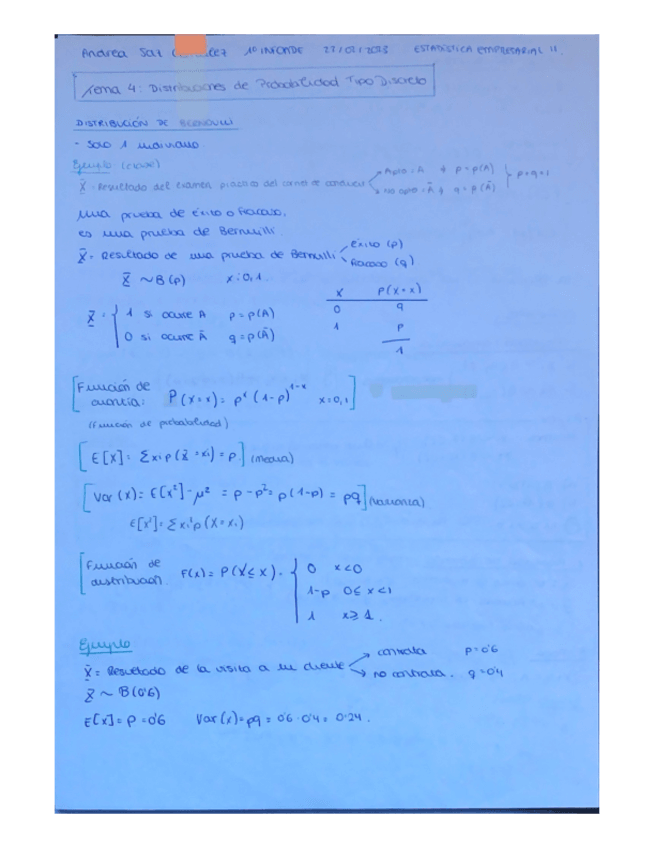 Andrea Saz 1º INFOADE 27/02/2023 ESTADÍSTICA EMPRESARIAL II.
Tema 4: Distribuciones de Probabilidad Tipo Discreto
DISTRIBUCIÓN DE BERNOULLI
- Solo 1 individuo
Ejemplo (clase)
X = Resultado del examen práctico del carnet de conducir Apto = A p = p(A) p+q=1
No apto = Ā q = p(Ā)
Una prueba de éxito o fracaso,
es una prueba de Bernuilli.
X = Resultado de una prueba de Bernuilli éxito (p)
fracaso (q)
X ~ B(p) x = 0, 1.
x P(X=x)
0 q
1 p
1
X = { 1 si ocurre A p = p(A)
0 si ocurre Ā q = p(Ā)
[Función de
cuantía: P(X=x) = pˣ (1-p)¹⁻ˣ x=0,1]
(función de probabilidad)
[E[X] = Σxi p(X=xi) = p] (media)
[Var(x) = E[x²] - μ² = p - p² = p(1-p) = pq] (varianza)
E[x²] = Σxi² p(X=xi)
[Función de
distribución. F(x) = P(X ≤ x) = { 0 x<0
1-p 0≤x<1
1 x≥1.
Ejemplo
X = Resultado de la visita a un cliente contrata p=0'6
no contrata. q=0'4
X ~ B(0'6)
E[x] = p = 0'6 Var(x) = pq = 0'6 · 0'4 = 0'24.